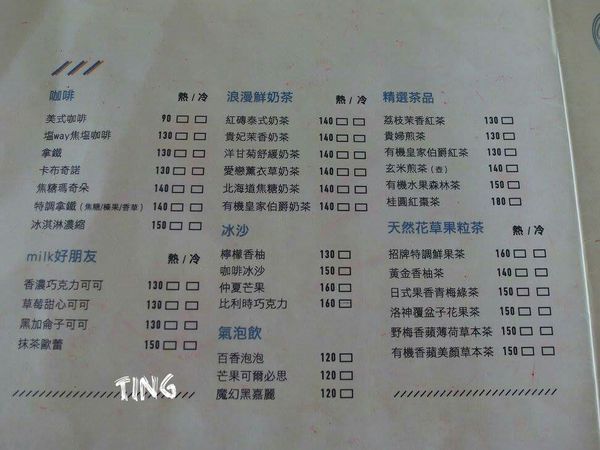 咖啡 熱/冷
美式咖啡 90
塩way焦塩咖啡 130
拿鐵 130
卡布奇諾 130
焦糖瑪奇朵 140
特調拿鐵(焦糖/榛果/香草) 140
冰淇淋濃縮 150
milk好朋友 熱/冷
香濃巧克力可可 130
草莓甜心可可 130
黑加侖子可可 130
抹茶歐蕾 150
浪漫鮮奶茶 熱/冷
紅磚泰式奶茶 140
貴妃茉香奶茶 140
洋甘菊舒緩奶茶 140
愛戀薰衣草奶茶 140
北海道焦糖奶茶 140
有機皇家伯爵奶茶 140
冰沙
檸檬香柚 130
咖啡冰沙 150
仲夏芒果 160
比利時巧克力 160
氣泡飲
百香泡泡 120
芒果可爾必思 120
魔幻黑嘉麗 120
精選茶品 熱/冷
荔枝茉香紅茶 130
貴婦煎茶 130
有機皇家伯爵紅茶 130
玄米煎茶(壺) 140
有機水果森林茶 150
桂圓紅棗茶 180
天然花草果粒茶 熱/冷
招牌特調鮮果茶 160
黃金香柚茶 140
日式果香青梅綠茶 150
洛神覆盆子花果茶 150
野梅香蘋薄荷草本茶 150
有機香蘋美顏草本茶 150
TING